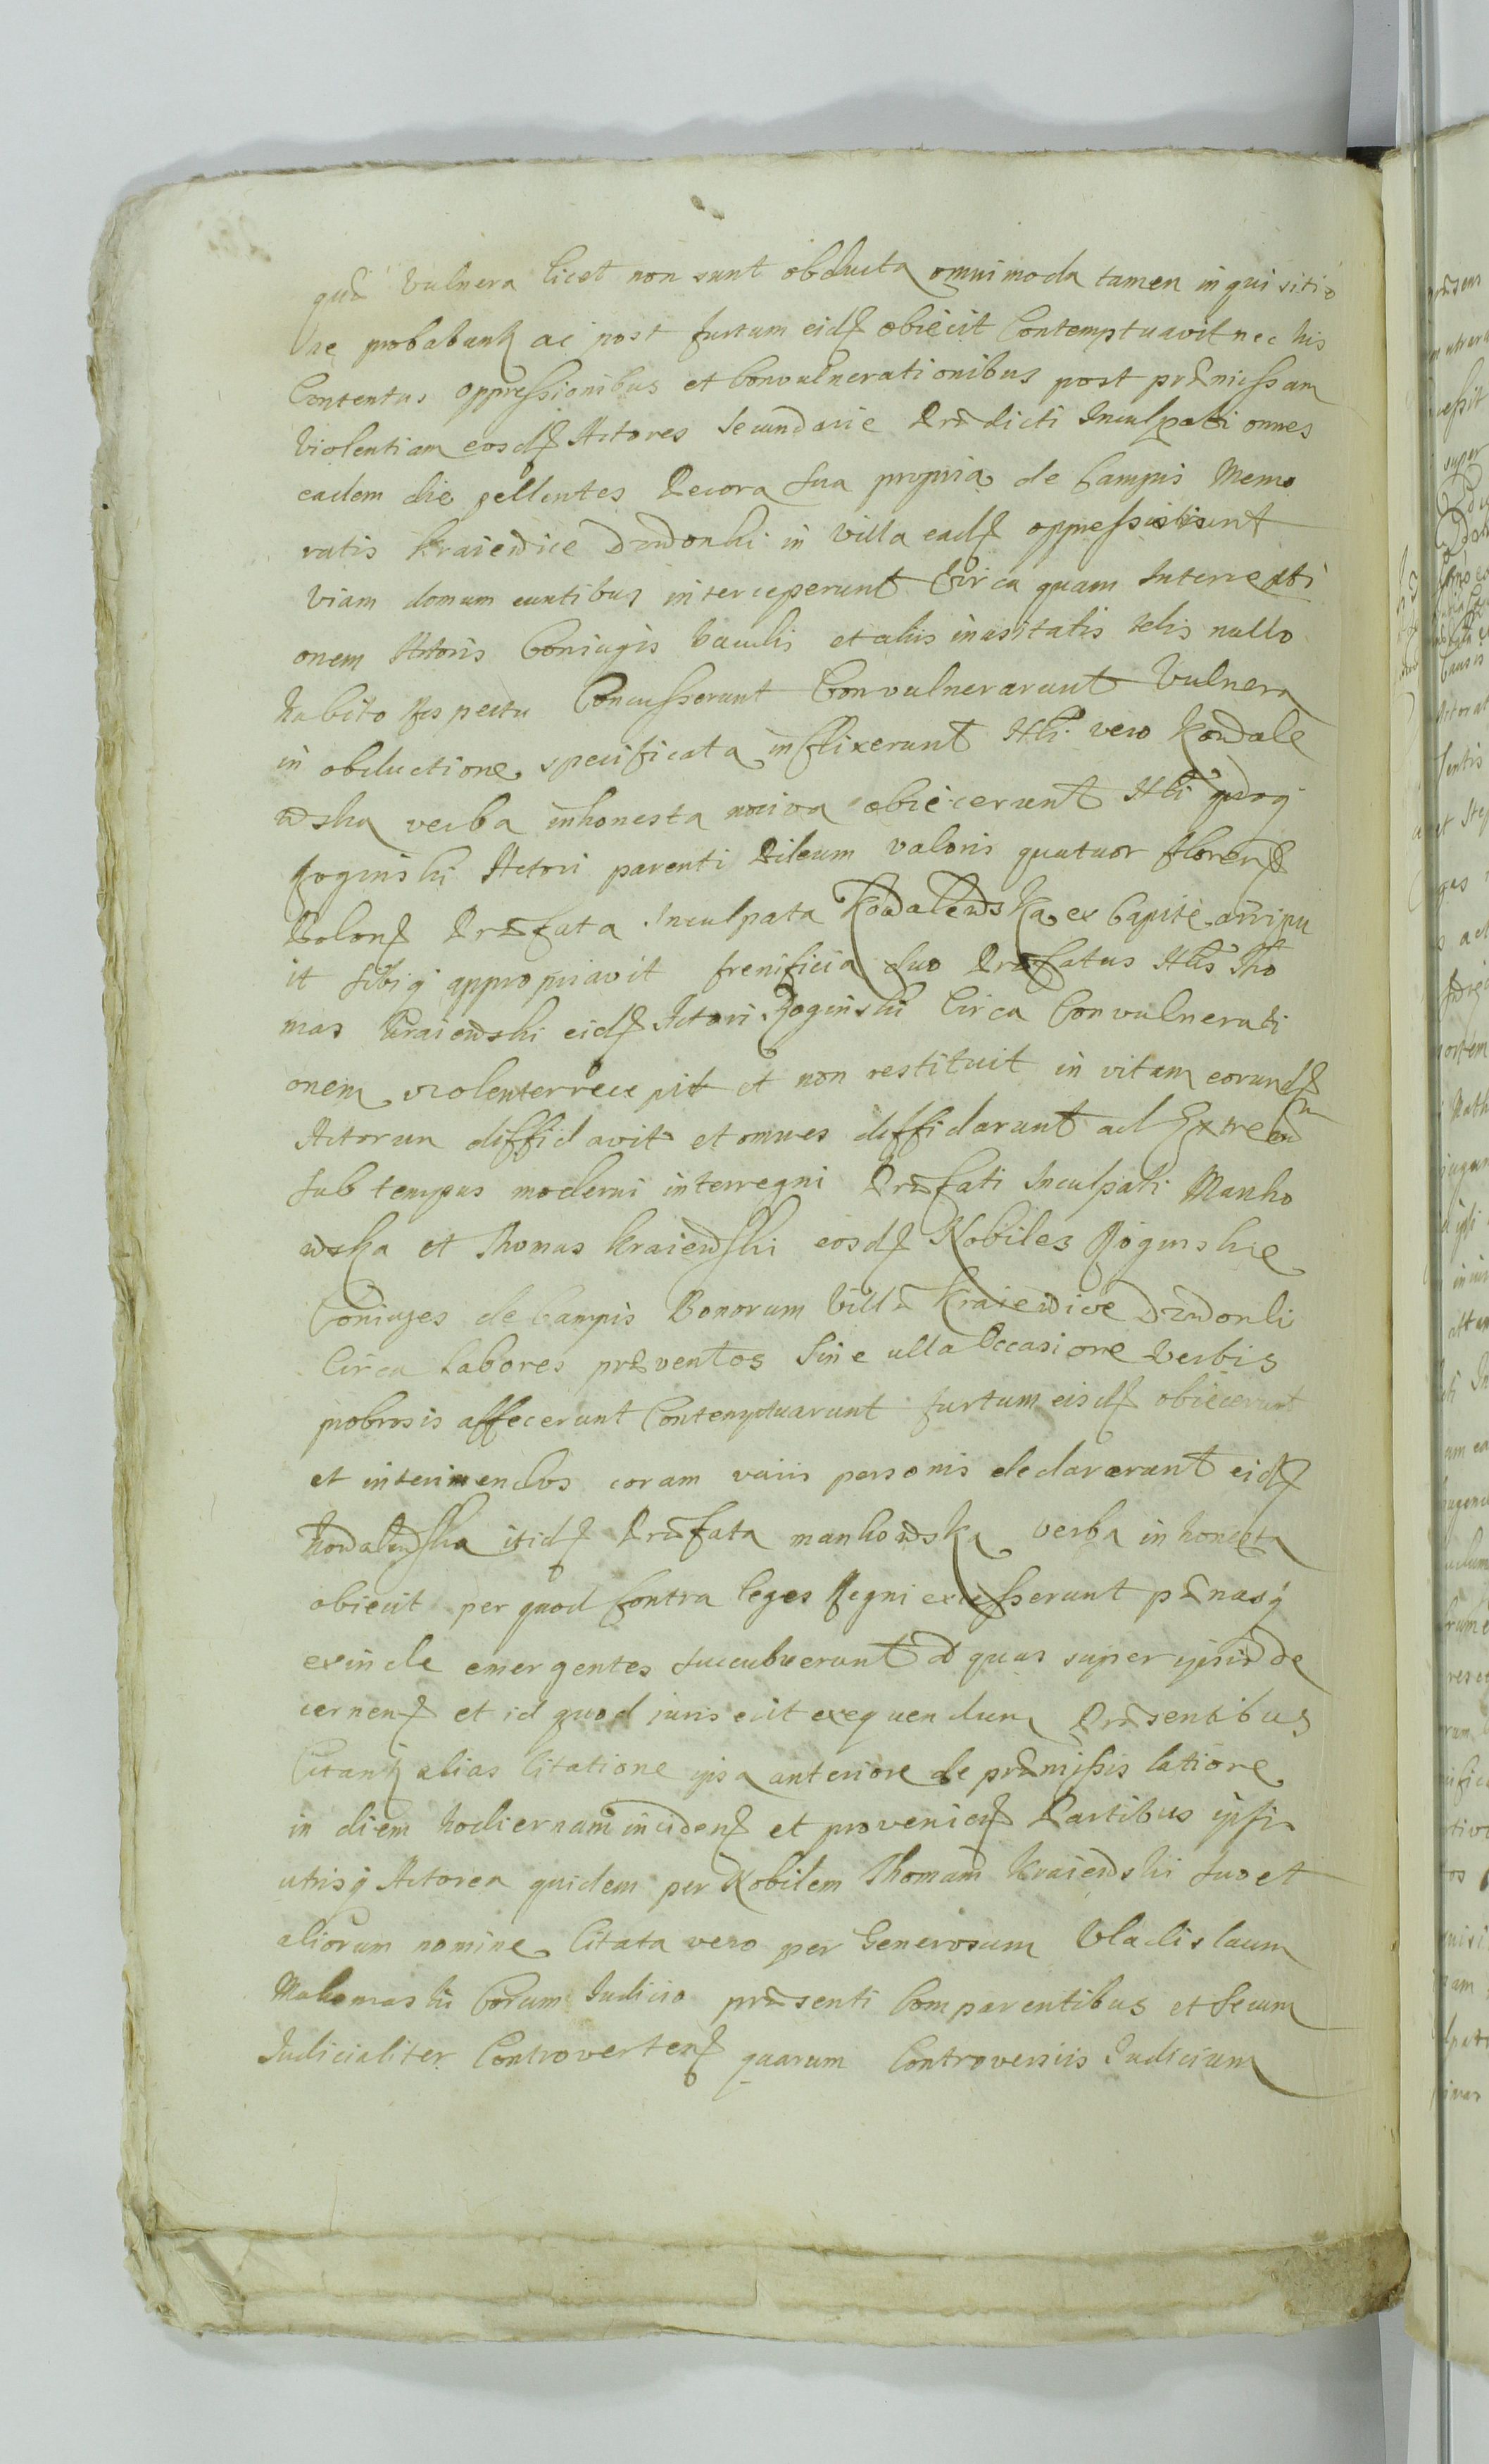 quæ Vulnera licet non sunt obducta omnimoda tamen inquisitio
ne probabunt ac post furtum eid obiecit Contemptuavit nec his
Contentus oppressionibus et Convulnerationibus post præmissam
Violentiam eosd Actores Secundarie Prædicti Inculpati omnes
eadem die pellentes Pecora sua propria de Campis Memo
ratis Kraiewice Dzwonki in Villa ead oppressistisunt
Viam domum euntibus interceperunt Circa quam Intercepti
onem Actoris Coniugis baculis et aliis inusitatis telis nullo
habito respectu Concusserunt Convulnerarunt Vulnera
in obductione specificata inflixerunt Nli vero Kowale
wska verba inhonesta nociva obiecerunt Nli quoq
Roginski Actori parenti Pileum valoris quatuor floren
Polon Præfata Inculpata Kowalewska ex Capite arripu
it sibiq appropriavit frenificia duo Præfatus Nlis Tho
mas Kraiewski eid Actori Roginski Circa Convulnerati
onem violenter recepit et non restituit in vitam eorund
Actorum diffidavit et omnes diffidarunt ad Extremum
sub tempus moderni interregni Præfati Inculpati Manko
wska et Thomas Kraiewski eosd Nobiles Roginskie
Coniuges de Campis Bonorum Villæ Kraiewice Dzwonki
Circa Labores præventos Sine ulla Occasione Verbis
probrosis affecerunt Contemptuarunt furtum eisd obiecerunt
et interimendos coram variis personis declararunt eid
Kowalewska itid Præfata mankowska verba inhonesta
obiecit per quod Contra leges Regni excesserunt pænasq
exinde emergentes succubuerunt ad quas super ipsis de
cernen et id quod iuris erit exequendum Præsentibus
Citant alias Citatione ipsa anteriore de præmissis latiore
in diem hodiernam inciden et provenien Partibus ipsis
utrisq Actorea quidem per Nobilem Thomam Kraiewski suo et
aliorum nomine Citata vero per Generosum Vladislaum
Makomaski Coram Iudicio præsenti Comparentibus et Secum
Iudicialiter Controverten quarum Controversiis Iudicium